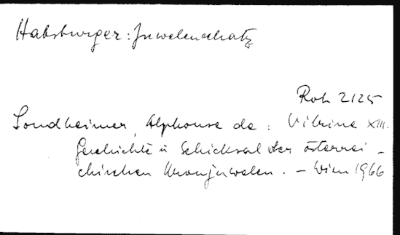 Habsburger: Juwelenschatz
Rok 2125
Sondheimer, Alphonse de: Vitrine XIII.
Geschichte u Schicksal der österrei-
chischen Kronjuwelen. - Wien 1966